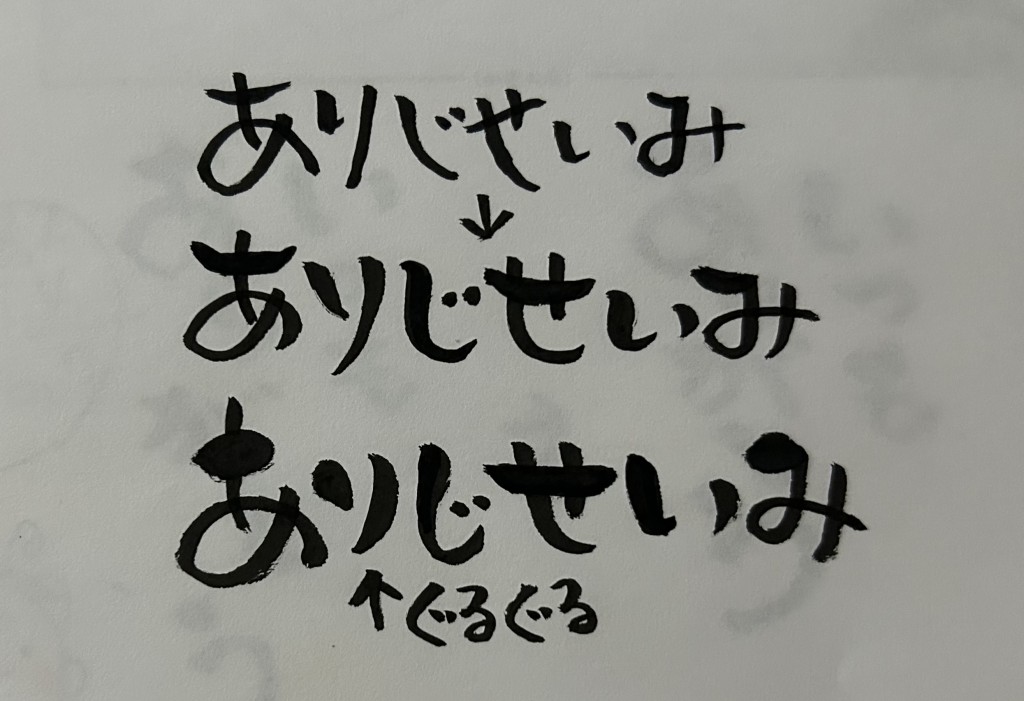 ありじせいみ
↓
ありじせいみ
ありじせいみ
↑ぐるぐる